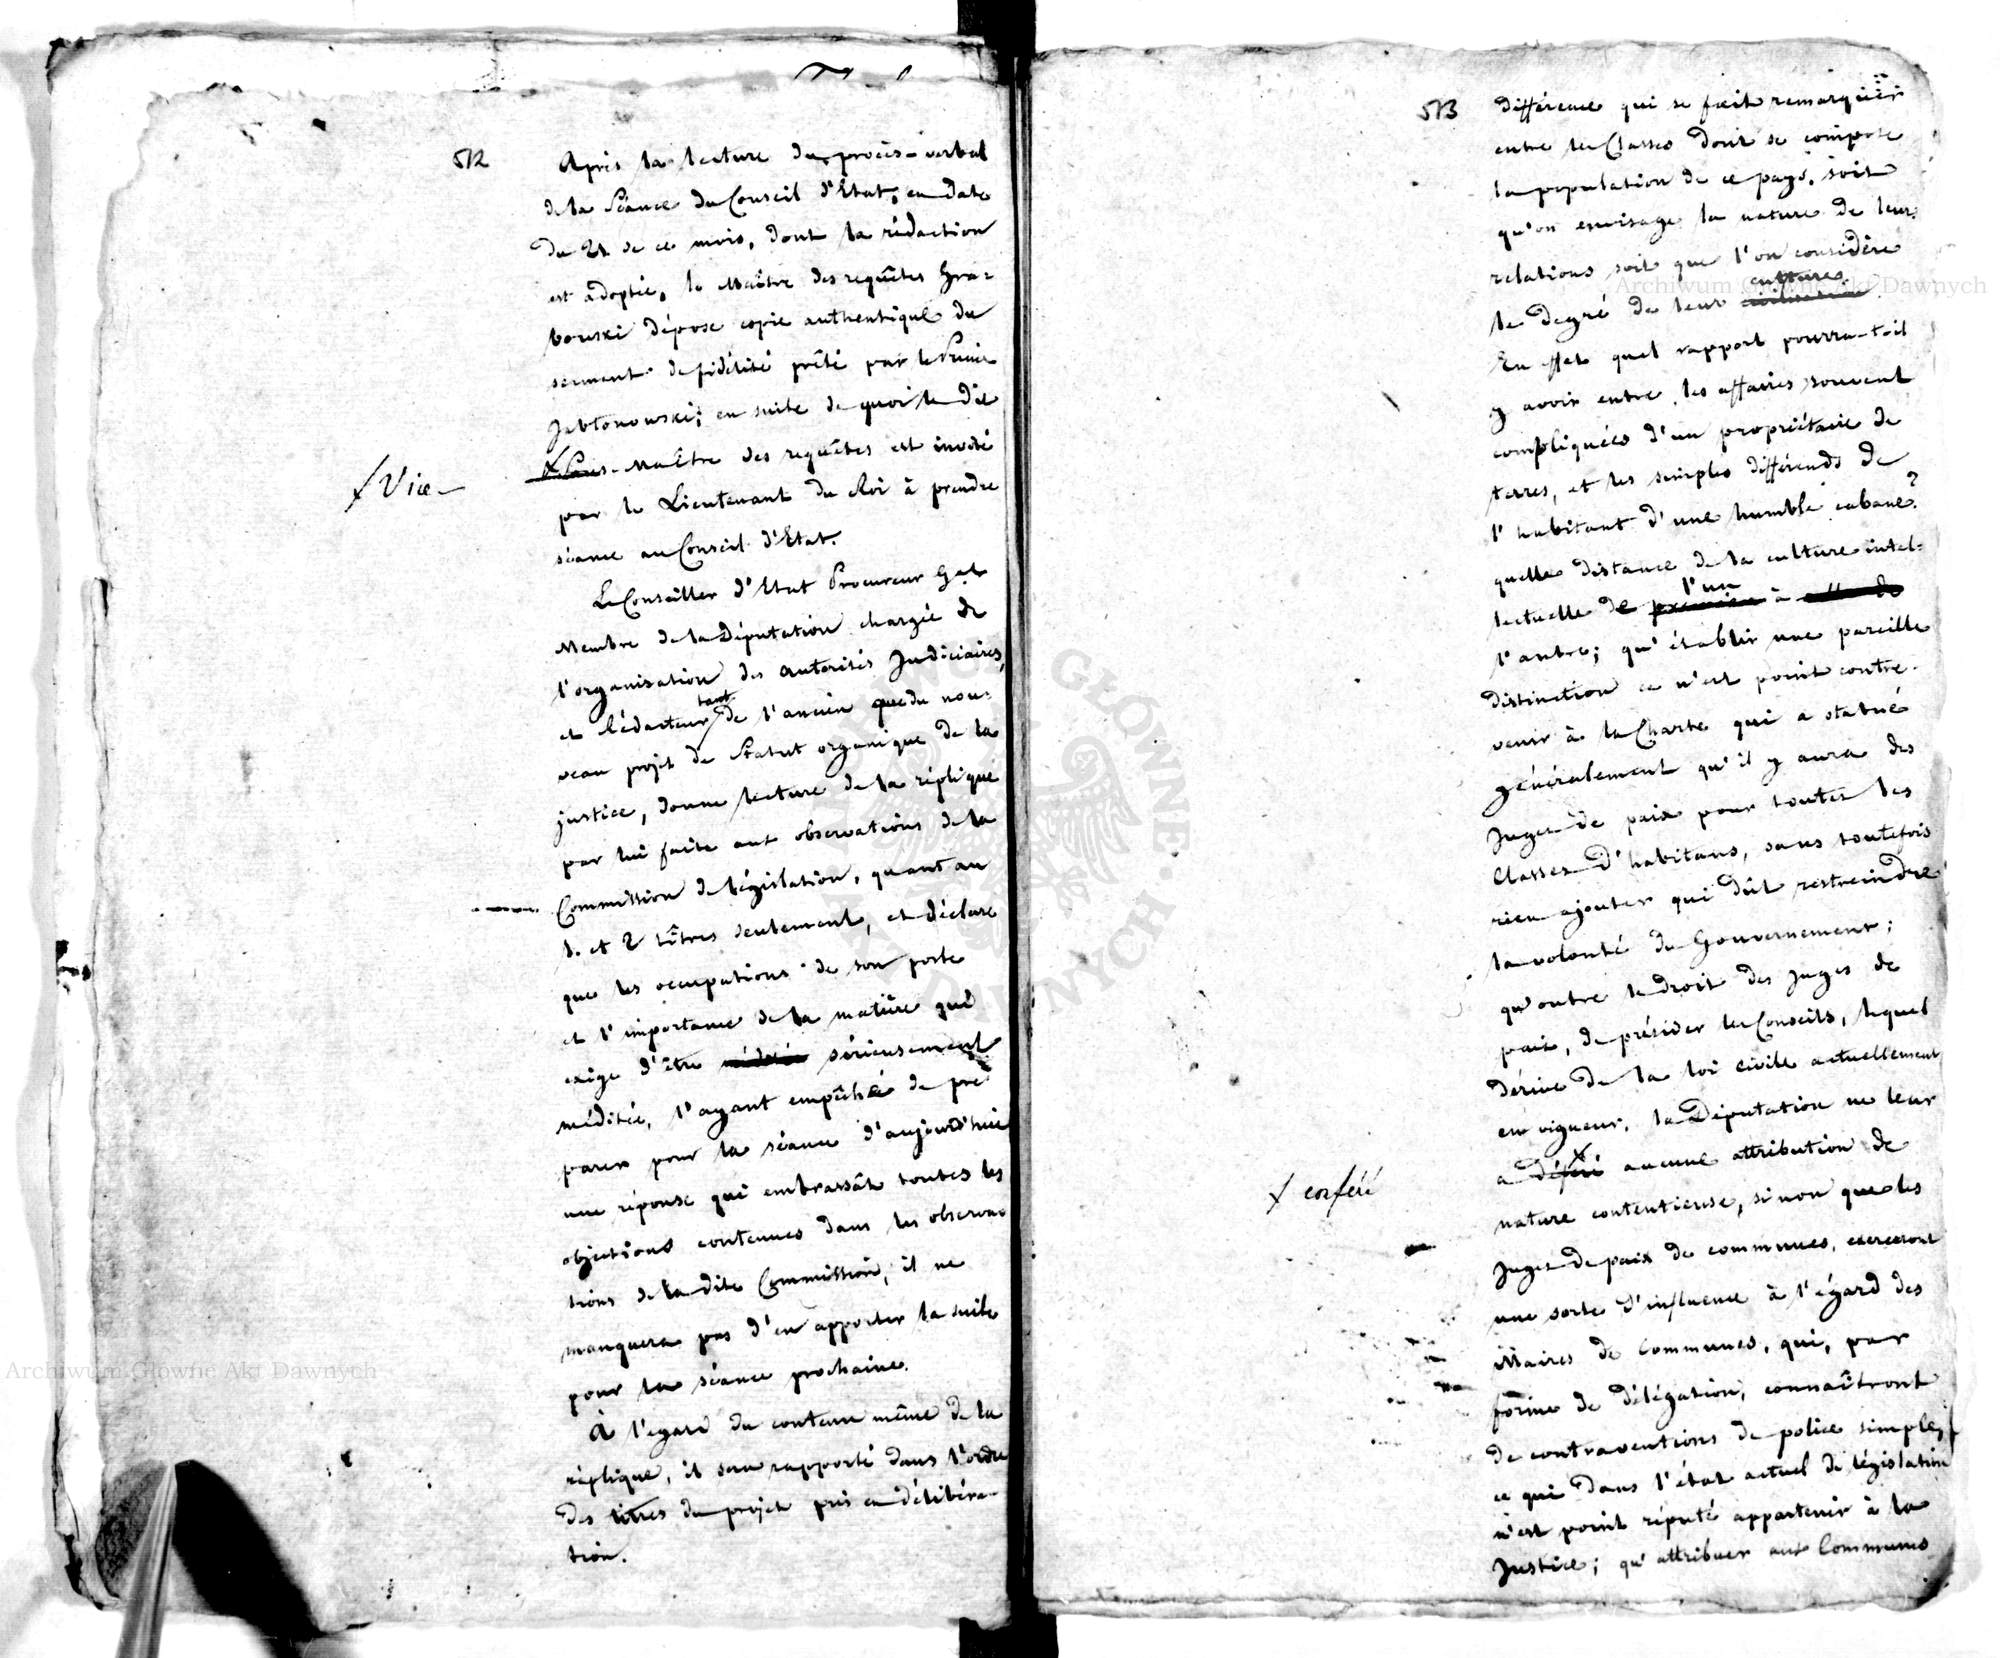 512
Après la lecture du procès-verbal
de la Séance du Conseil d'État, en date
du 21 de ce mois, dont la rédaction
est adoptée, le Maître des requêtes Gra-
bowski dépose copie authentique du
serment de fidélité prêté par le Prince
Jabłonowski; en suite de quoi le dit
Vice-
Maître des requêtes est invité
par le Lieutenant du Roi à prendre
séance au Conseil d'Etat.
Le Conseiller d'Etat Procureur Gal
Membre de la Députation chargée de
l'organisation des autorités Judiciaires,
et Rédacteur tant de l'ancien que du nou-
veau projet de Statut organique de la
justice, donne lecture de la réplique
par lui faite aux observations de la
Commission de législation, quant au
1. et 2 titres seulement, et déclare
que les occupations de son poste
et l'importance de la matière qui
exige d'être sérieusement
méditée, l'ayant empêché de pré
parer pour la séance d'aujourd'hui
une réponse qui embrassât toutes les
objections contenues dans les observa-
tions de la dite Commission, il ne
manquera pas d'en apporter la suite
pour la séance prochaine.
A l'égard du contenu même de la
réplique, il sera rapporté dans l'ordre
des titres du projet pris en délibéra-
tion.
513
différence qui se fait remarquer
entre les Classes dont se compose
la population de ce pays, soit
qu'on envisage la nature de leurs
relations soit que l'on considère
le degré de leur culture
En effet quel rapport pourra-t-il
y avoir entre les affaires souvent
compliquées d'un propriétaire de
terres, et les simples différends de
l'habitant d'une humble cabane?
quelle distance de la culture intel-
lectuelle de l'un à
l'autre; qu'établir une pareille
distinction ce n'est point contre-
venir à la Charte qui a statué
généralement qu'il y aura des
Juges de paix pour toutes les
Classes d'habitans, sans toutefois
rien ajouter qui dût restreindre
la volonté du Gouvernement;
qu'outre le droit des Juges de
paix, de présider les Conseils, lequel
dérive de la loi civile actuellement
en vigueur, la Députation ne leur
a déféré aucune attribution de
conféré
nature contentieuse, sinon que les
Juges de paix de communes, exerceront
une sorte d'influence à l'égard des
Maires de Communes, qui, par
forme de délégation, connaîtront
de contraventions de police simple,
ce qui dans l'état actuel de législation
n'est point réputé appartenir à la
Justice; qu'attribuer aux Communes
Archiwum Główne Akt Dawnych
Archiwum Główne Akt Dawnych